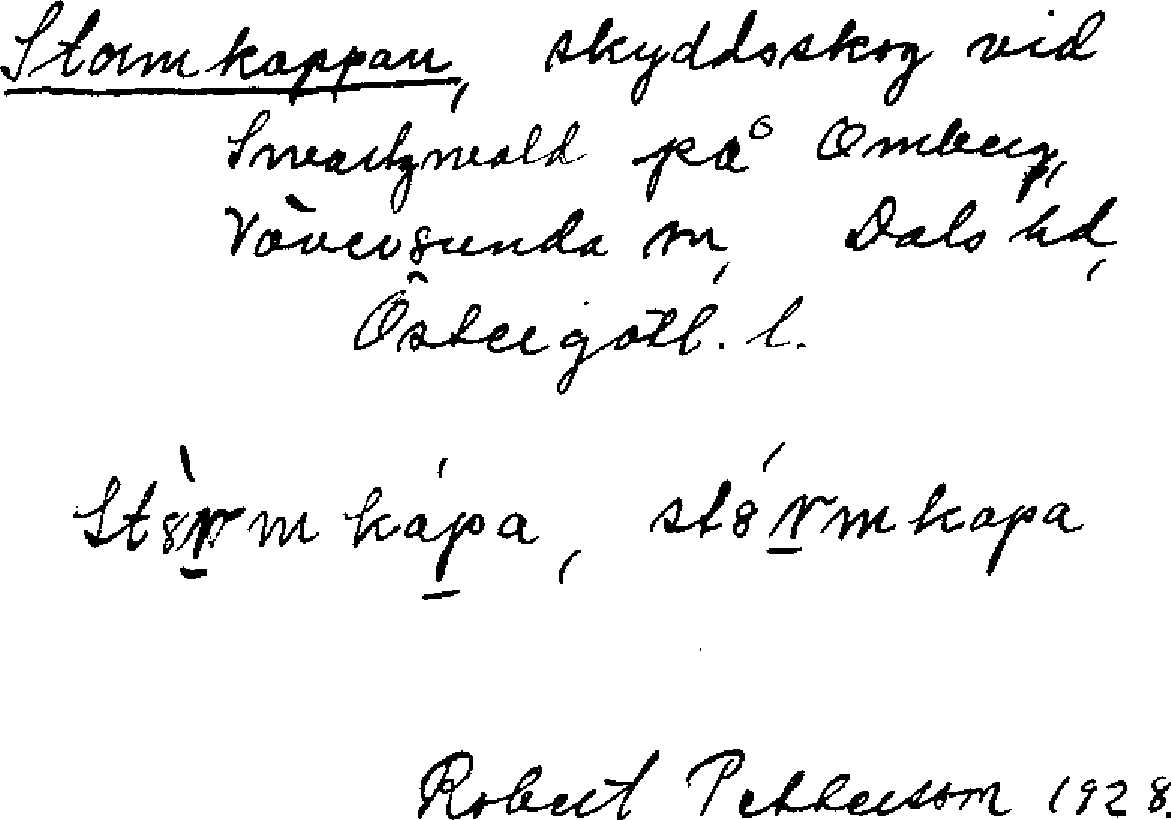 Stormkappan, skyddsskog vid
Swartzwald på Omberg,
Väversunda sn, Dals hd,
Östergötl. l.
Stȣ̀rmkápa, stȣ́rmkapa
Robert Pettersson 1928.